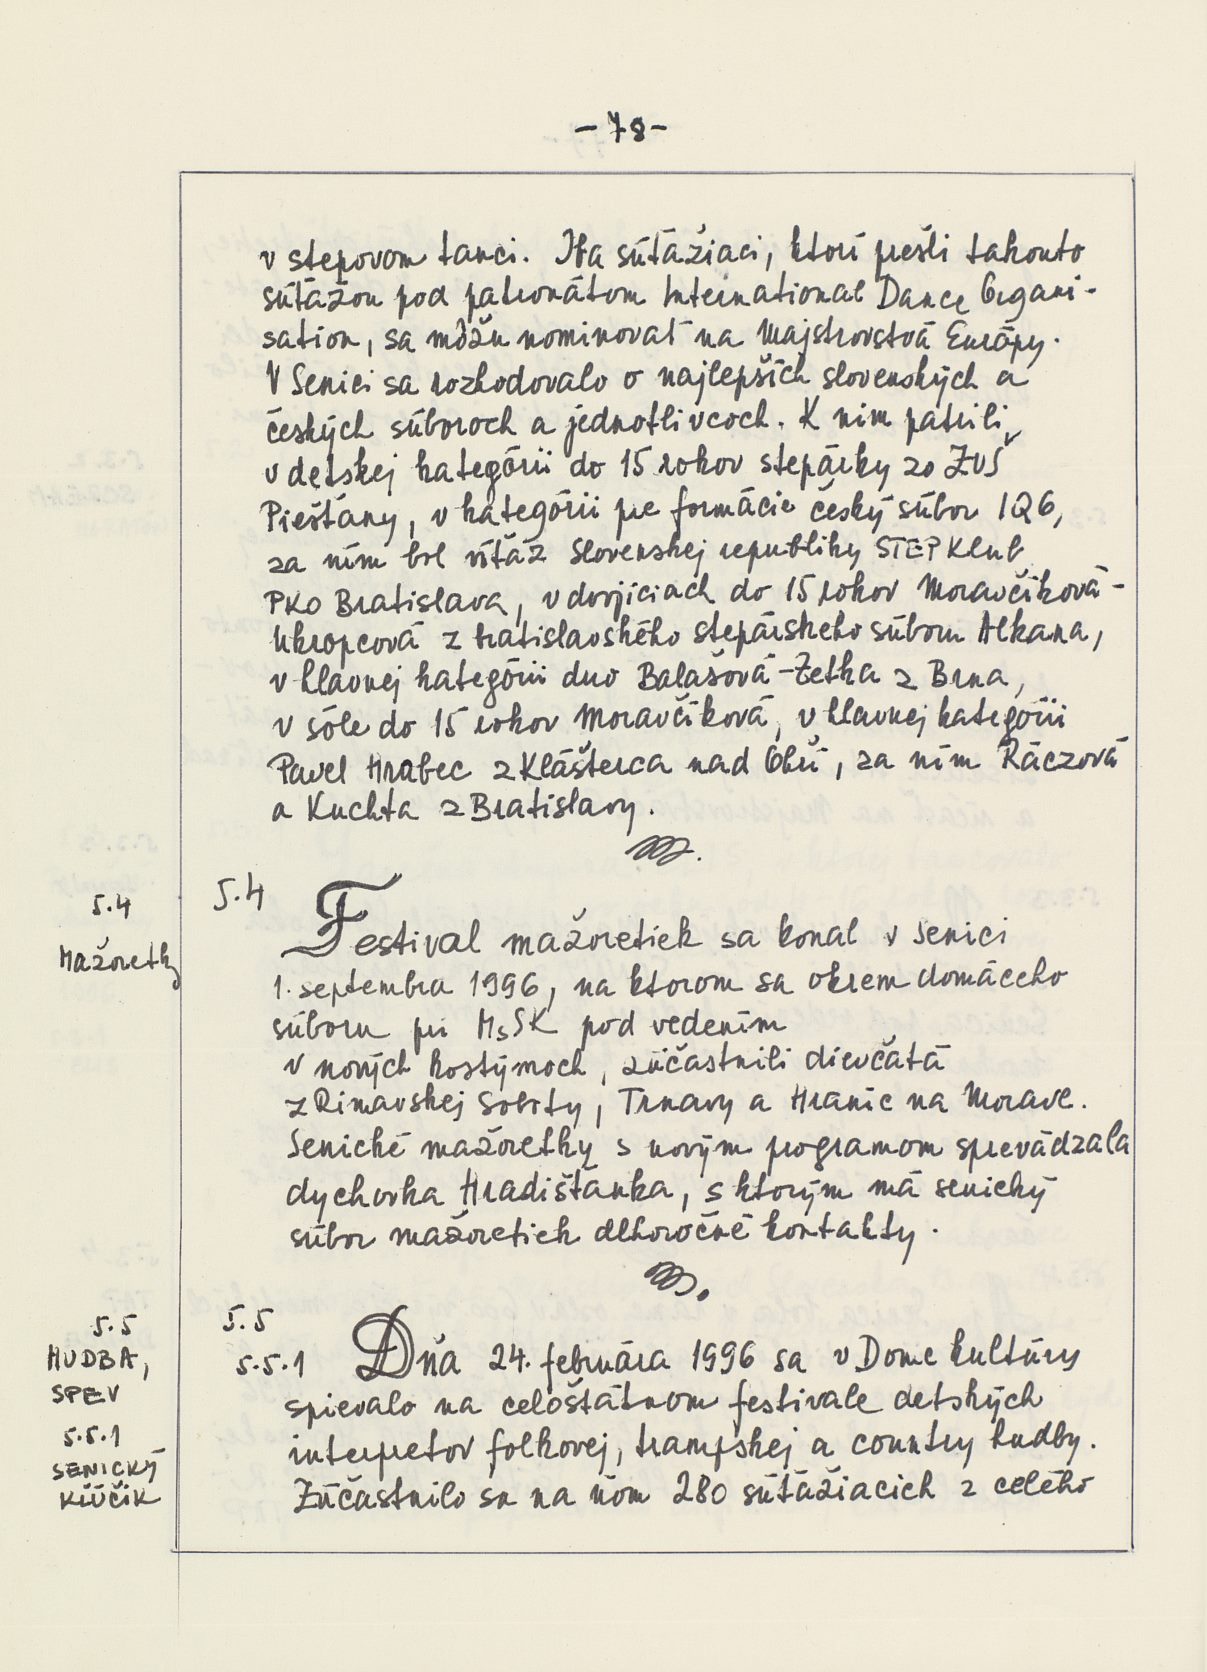 - 78 -
v stepovom tanci. Iba súťažiaci, ktorí prešli takouto
súťažou pod patronátom International Dance Organi-
sation, sa môžu nominovať na Majstrovstvá Európy.
V Senici sa rozhodovalo o najlepších slovenských a
českých súboroch a jednotlivcoch. K nim patrili
v detskej kategórii do 15 rokov stepárky zo ZUŠ
Piešťany, v kategórii pre formácie český súbor IQ6,
za ním bol víťaz Slovenskej republiky STEP Klub
PKO Bratislava, v dvojiciach do 15 rokov Moravčíková-
Ukropcová z bratislavského stepárskeho súboru Alkana,
v hlavnej kategórii duo Balašová-Zetka z Brna,
v sóle do 15 rokov Moravčíková, v hlavnej kategórii
Pavel Hrabec z Klášterca nad Ohří, za ním Ráczová
a Kuchta z Bratislavy.
5.4
Mažoretky
5.4 Festival mažoretiek sa konal v Senici
1. septembra 1996, na ktorom sa okrem domáceho
súboru pri MsSK pod vedením
v nových kostýmoch, zúčastnili dievčatá
z Rimavskej Soboty, Trnavy a Hraníc na Morave.
Senické mažoretky s novým programom sprevádzala
dychovka Hradišťanka, s ktorým má senický
súbor mažoretiek dlhoročné kontakty.
5.5
HUDBA,
SPEV
5.5.1
SENICKÝ
KĽÚČIK
5.5
5.5.1 Dňa 24. februára 1996 sa v Dome kultúry
spievalo na celoštátnom festivale detských
interpretov folkovej, trampskej a country hudby.
Zúčastnilo sa na ňom 280 súťažiacich z celého